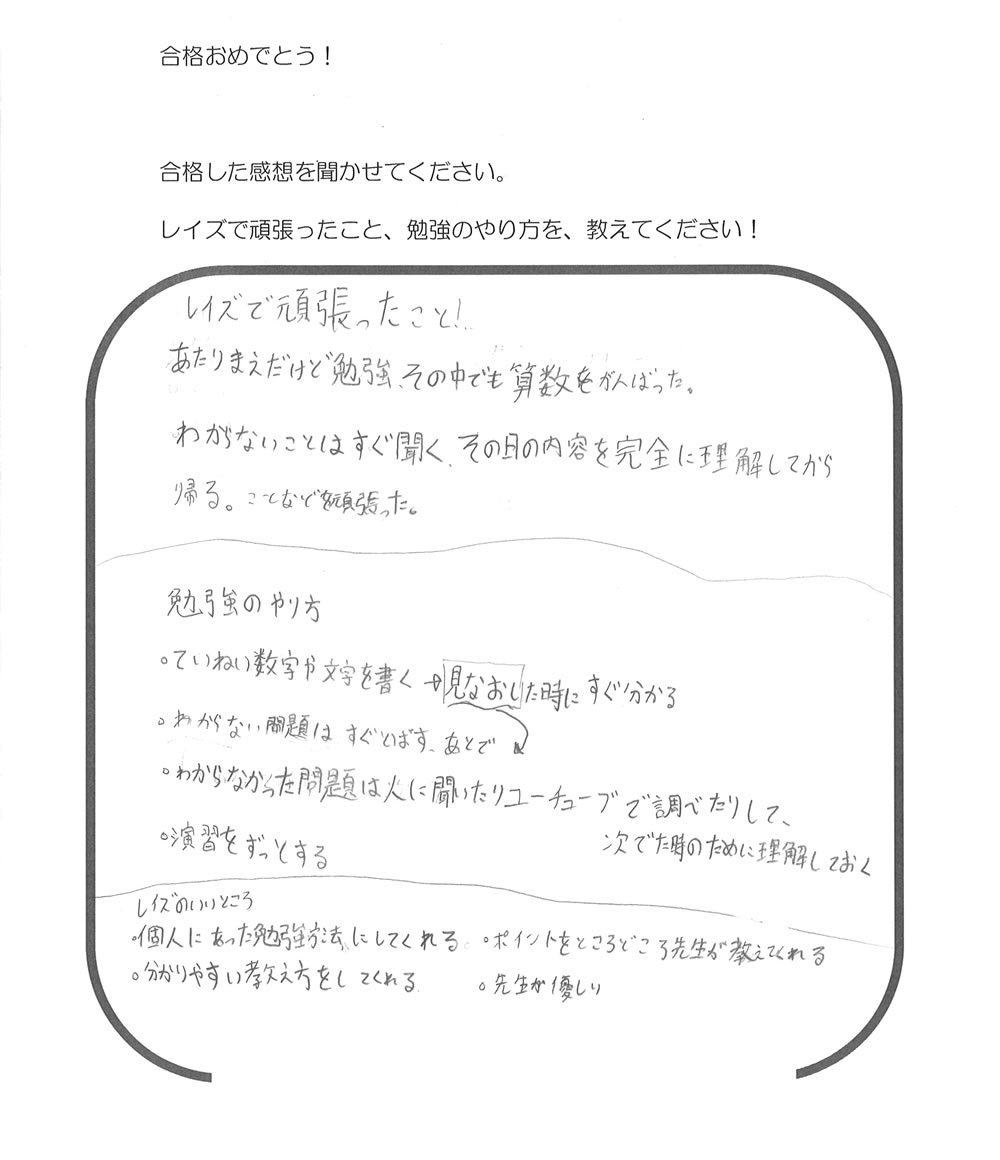 合格おめでとう！
合格した感想を聞かせてください。
レイズで頑張ったこと、勉強のやり方を、教えてください！
レイズで頑張ったこと!
あたりまえだけど勉強、その中でも算数をがんばった。
わからないことはすぐ聞く、その日の内容を完全に理解してから
帰る。ことなどを頑張った。
勉強のやり方
・ていねい数字や文字を書く→見なおした時にすぐ分かる
・わからない問題はすぐとばす、あとで
・わからなかった問題は人に聞いたりユーチューブで調べたりして、
次でた時のために理解しておく
・演習をずっとする
レイズのいいところ
・個人にあった勉強方法にしてくれる ・ポイントをところどころ先生が教えてくれる
・分かりやすい教え方をしてくれる ・先生が優しい